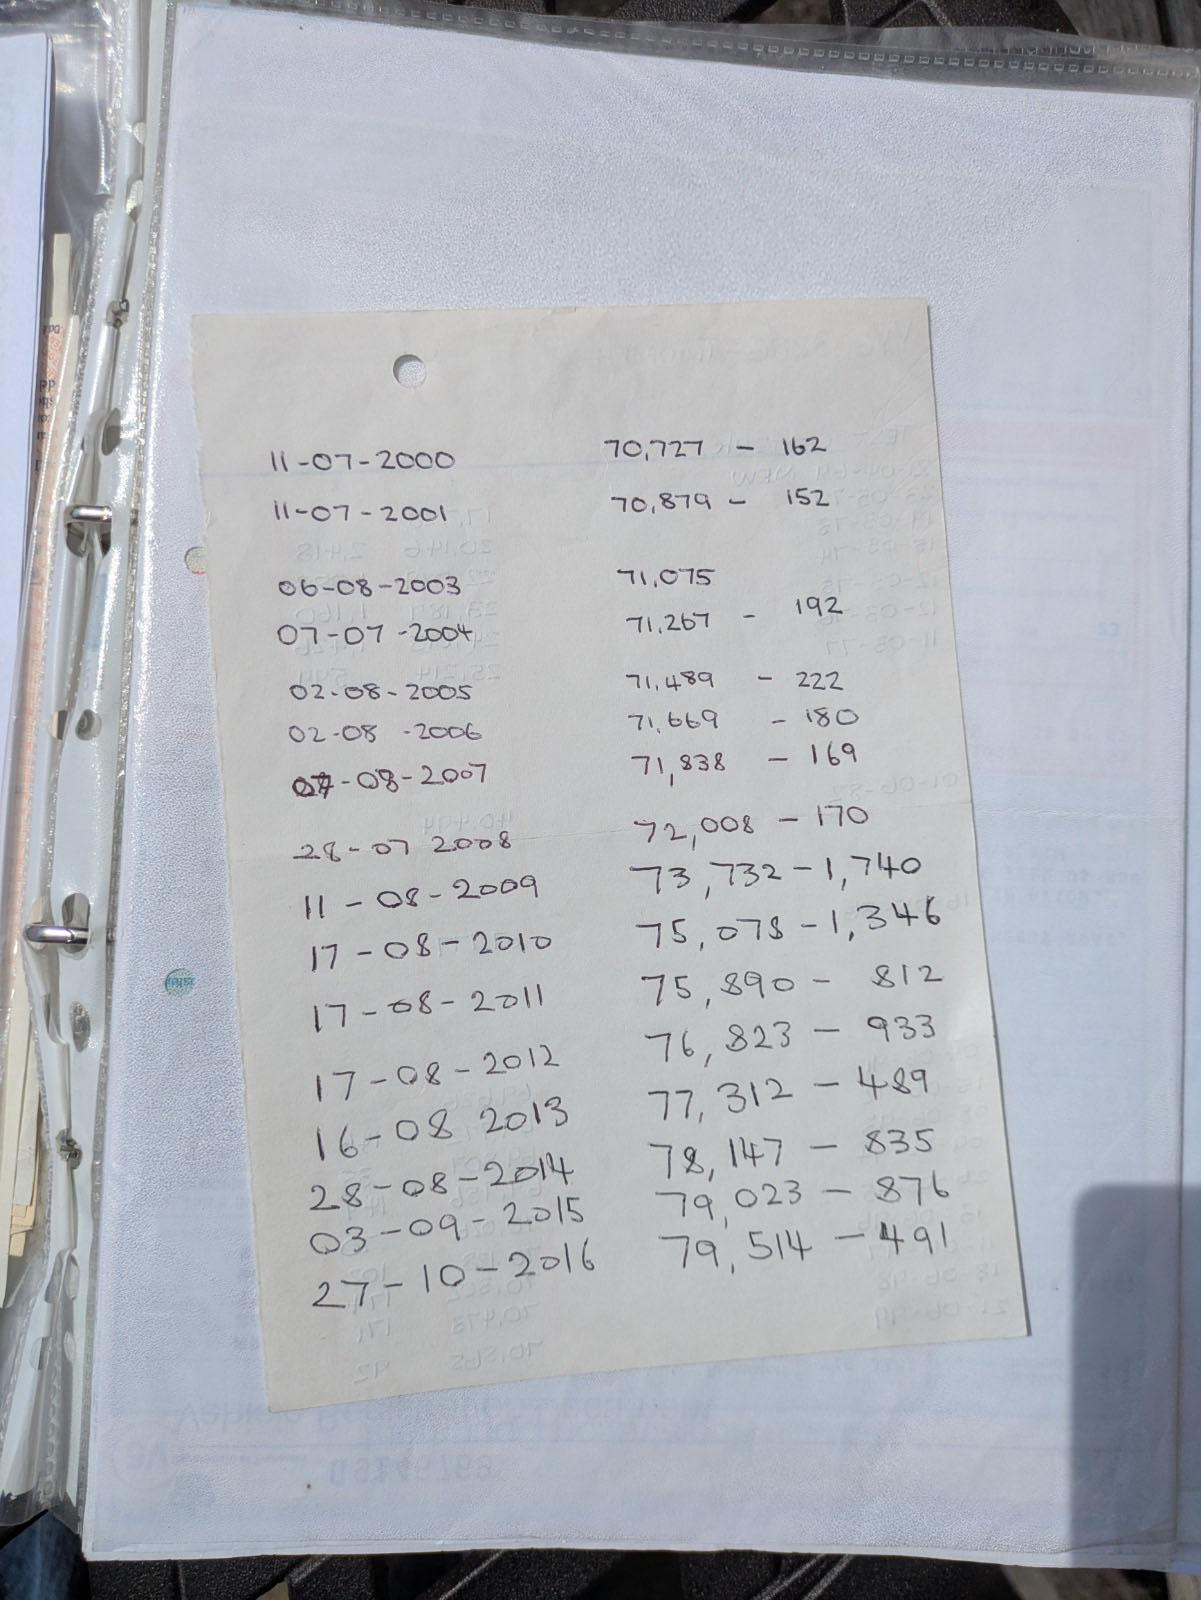 11-07-2000 70,727 - 162
11-07-2001 70,879 - 152
06-08-2003 71,075
07-07-2004 71,267 - 192
02-08-2005 71,489 - 222
02-08-2006 71,669 - 180
07-08-2007 71,838 - 169
28-07 2008 72,008 - 170
11-08-2009 73,732 - 1,740
17-08-2010 75,078 - 1,346
17-08-2011 75,890 - 812
17-08-2012 76,823 - 933
16-08 2013 77,312 - 489
28-08-2014 78,147 - 835
03-09-2015 79,023 - 876
27-10-2016 79,514 - 491